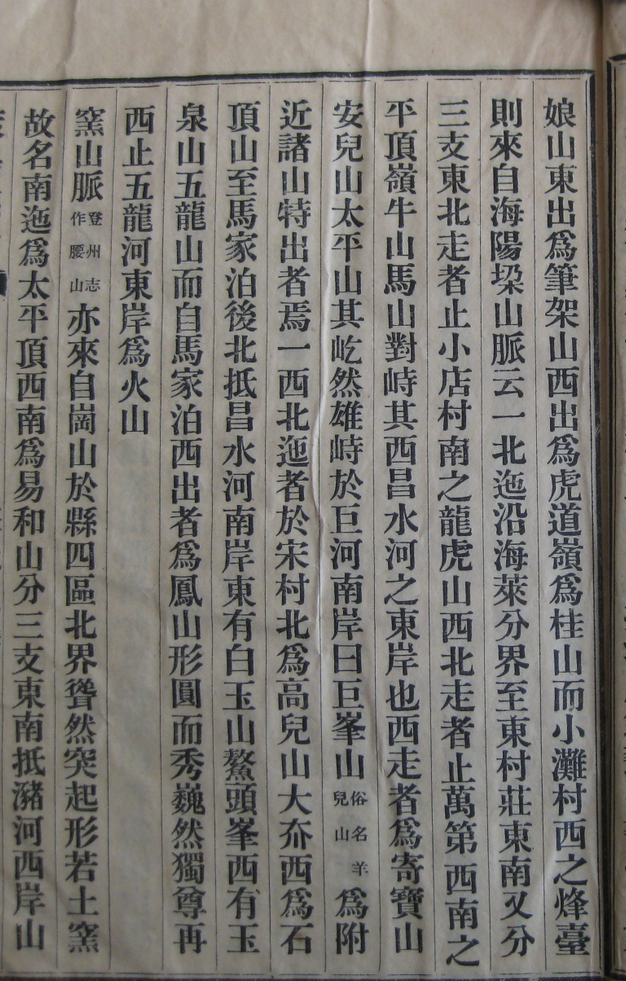 娘山東出爲筆架山西出爲虎道嶺爲桂山而小灘村西之烽臺
則來自海陽垜山脈云一北迤沿海萊分界至東村莊東南又分
三支東北走者止小店村南之龍虎山西北走者止萬第西南之
平頂嶺牛山馬山對峙其西昌水河之東岸也西走者爲寄寶山
安兒山太平山其屹然雄峙於巨河南岸曰巨峯山俗名羊兒山爲附
近諸山特出者焉一西北迤者於宋村北爲高兒山大夼西爲石
頂山至馬家泊後北抵昌水河南岸東有白玉山鰲頭峯西有玉
泉山五龍山而自馬家泊西出者爲鳳山形圓而秀巍然獨尊再
西止五龍河東岸爲火山
窰山脈登州志作腰山亦來自崗山於縣四區北界聳然突起形若土窰
故名南迤爲太平頂西南爲易和山分三支東南抵瀦河西岸山